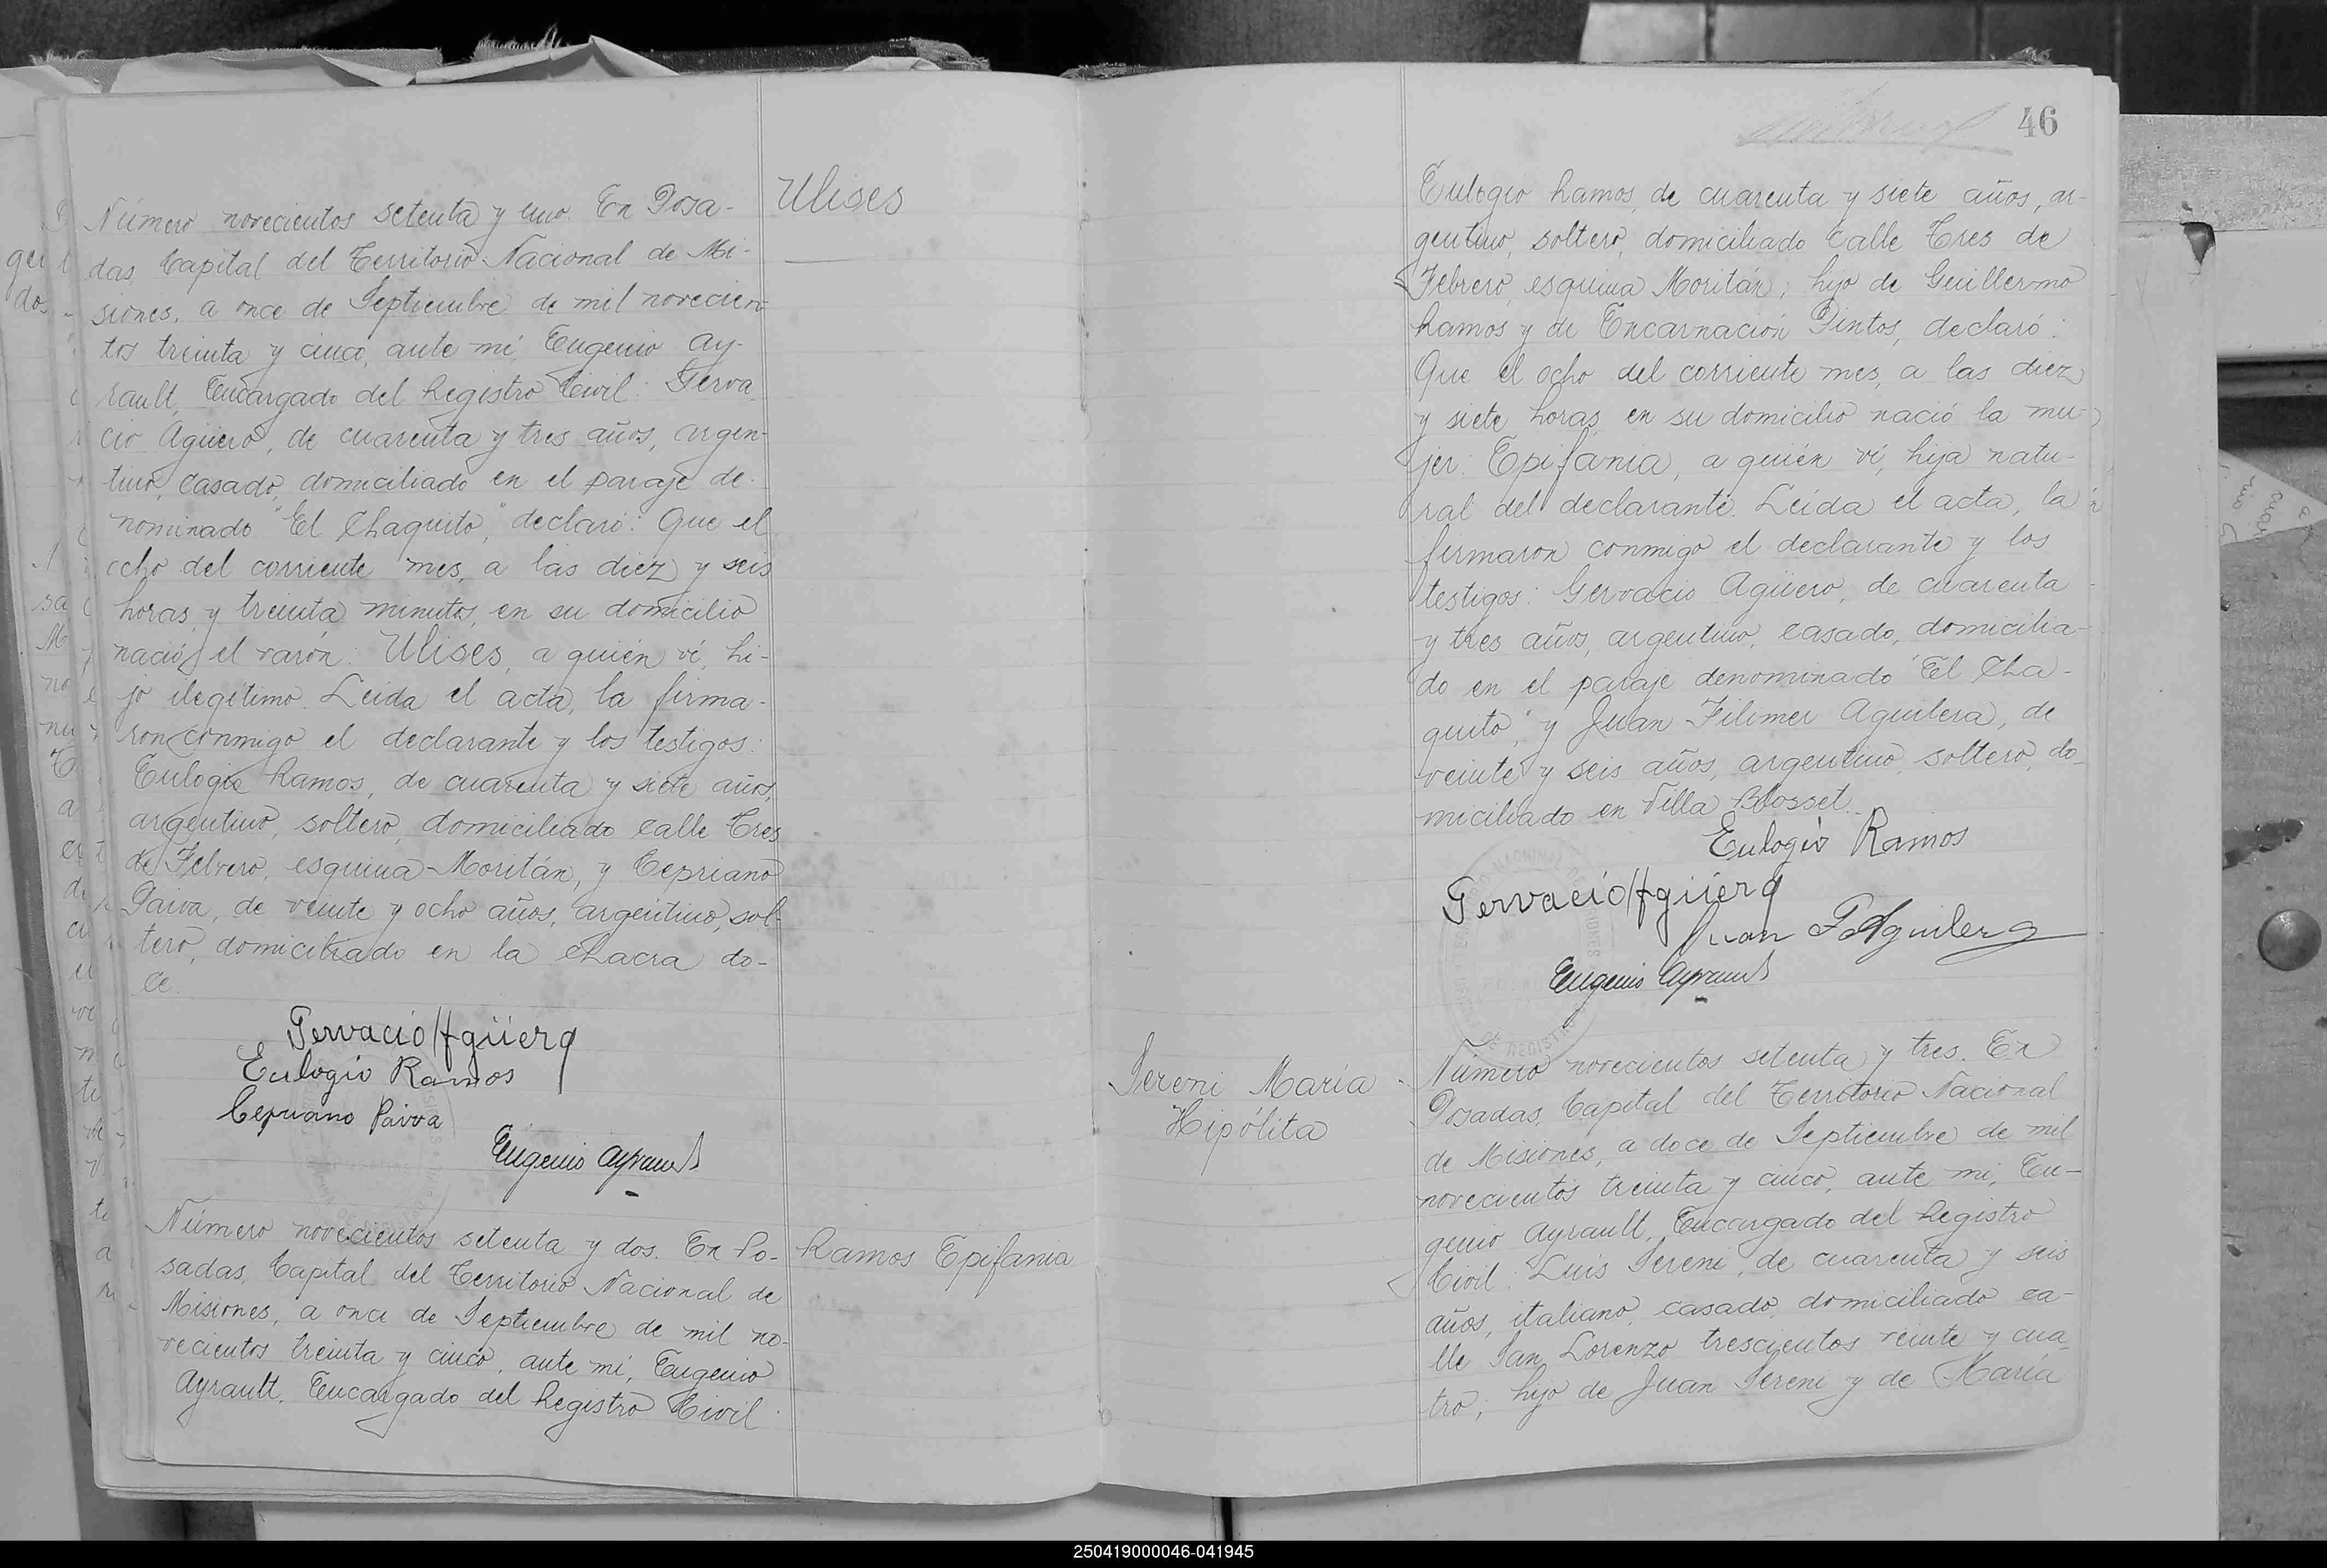 Ulises
Número novecientos setenta y uno. En Posa-
das, Capital del Territorio Nacional de Mi-
siones, a once de Septiembre de mil novecien-
tos treinta y cinco, ante mí, Eugenio Ay-
rault, Encargado del Registro Civil: Gerva
cio Agüero, de cuarenta y tres años, argen-
tino, casado, domiciliado en el paraje de-
nominado "El Chaquito," declaró: Que el
ocho del corriente mes, a las diez y seis
horas y treinta minutos, en su domicilio
nació el varón: Ulises, a quién ví, hi-
jo ilegítimo. Leída el acta, la firma-
ron conmigo el declarante y los testigos:
Eulogio Ramos, de cuarenta y siete años,
argentino, soltero, domiciliado calle Tres
de Febrero, esquina Moritán, y Cepriano
Paiva, de veinte y ocho años, argentino, sol-
tero, domiciliado en la chacra do-
ce.
Gervacio Agüero
Eulogio Ramos
Cepriano Paiva
Eugenio Ayrault
Ramos Epifania
Número novecientos setenta y dos. En Po-
sadas, Capital del Territorio Nacional de
Misiones, a once de Septiembre de mil no-
vecientos treinta y cinco, ante mí, Eugenio
Ayrault, Encargado del Registro Civil:
46
Eulogio Ramos, de cuarenta y siete años, ar-
gentino, soltero, domiciliado calle Tres de
Febrero, esquina Moritán; hijo de Guillermo
Ramos y de Encarnación Pintos, declaró:
Que el ocho del corriente mes, a las diez
y siete horas, en su domicilio nació la mu-
jer: Epifania, a quién ví, hija natu-
ral del declarante. Leída el acta, la
firmaron conmigo el declarante y los
testigos: Gervacio Agüero, de cuarenta
y tres años, argentino, casado, domicilia-
do en el paraje denominado "El Cha-
quito," y Juan Filomer Aguilera, de
veinte y seis años, argentino, soltero, do-
miciliado en Villa Blosset.
Eulogio Ramos
Gervacio Agüero
Juan F. Aguilera
Eugenio Ayrault
Sereni María
Hipólita
Número novecientos setenta y tres. En
Posadas, Capital del Territorio Nacional
de Misiones, a doce de Septiembre de mil
novecientos treinta y cinco, ante mí, Eu-
genio Ayrault, Encargado del Registro
Civil: Luis Sereni, de cuarenta y seis
años, italiano, casado, domiciliado ca-
lle San Lorenzo trescientos veinte y cua-
tro; hijo de Juan Sereni y de María
250419000046-041945